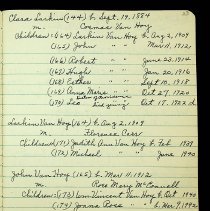 Clara Larkin (144) b. Sept. 19, 1884
Cosmas Van Hoy
Children: (164) Larkin Van Hoy b. Aug 2, 1909
(165) John " " Mar 11, 1912
(166) Robert " " June 22, 1914
(167) Hugh " " Jan 20, 1916
(168) Esther " " Feb 8, 1918
(169) Anna Marie " " Oct 27, 1920
(170) Leo " " Oct 17, 1922 d
Larkin Van Hoy (164) b. Aug 2, 1909
m. Florence Carr
Children: (171) Judith Ann Van Hoy b. Feb 1939
(172) Michael " " June 1940
John Van Hoy (165) b. Mar 11, 1912
m. Rose Mary McConnell
Children: (173) Vincent Van Hoy b. Oct 1940
(174) Rose " " b. Mar 9, 1942